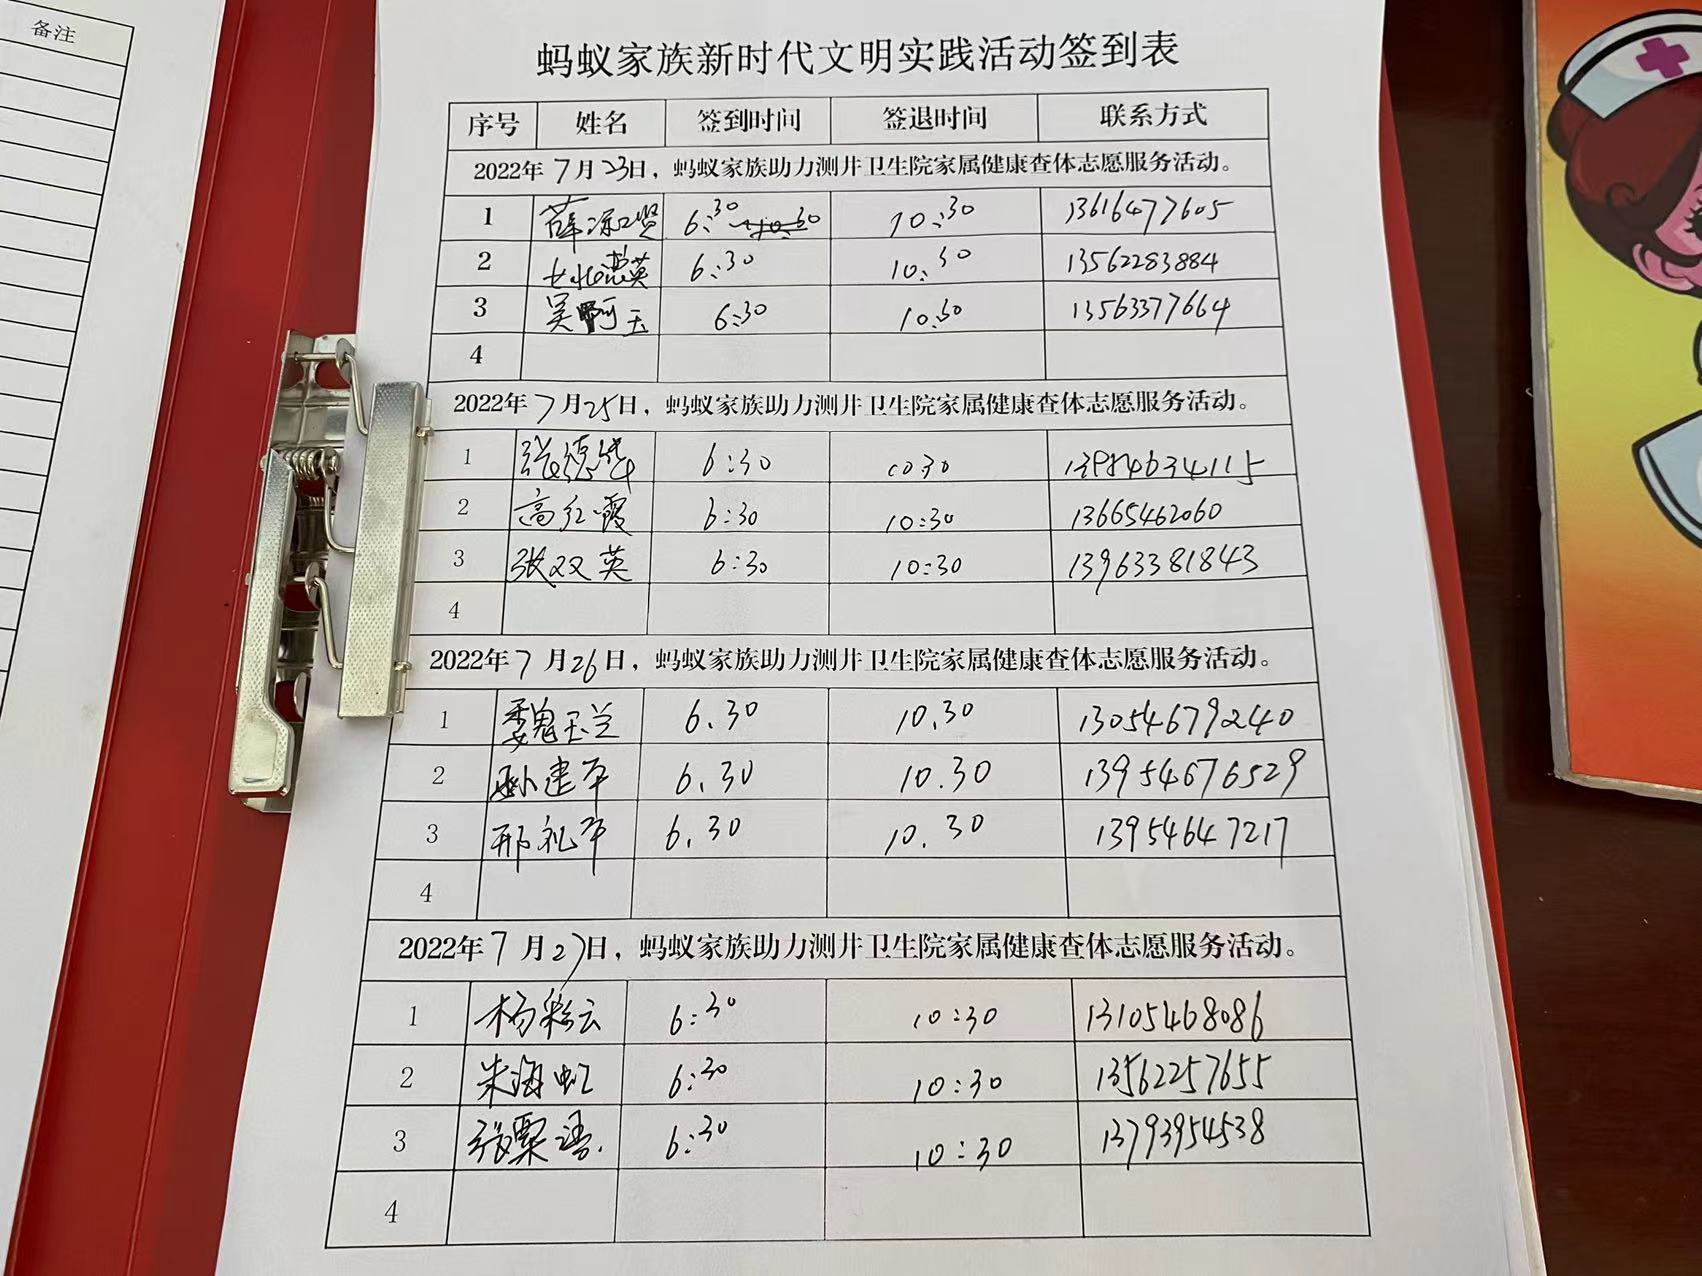 备注
蚂蚁家族新时代文明实践活动签到表
序号 姓名 签到时间 签退时间 联系方式
2022年7月23日，蚂蚁家族助力测井卫生院家属健康查体志愿服务活动。
1 薛深贤 6:30 10:30 13616477605
2 英 6:30 10:30 13562283884
3 吴 玉 6:30 10:30 13563377664
4
2022年7月25日，蚂蚁家族助力测井卫生院家属健康查体志愿服务活动。
1 张德华 6:30 1030
2 高红霞 6:30 10:30 13665462060
3 张双英 6:30 10:30 13963381843
4
2022年7月26日，蚂蚁家族助力测井卫生院家属健康查体志愿服务活动。
1 魏玉兰 6.30 10.30 13054679240
2 孙建平 6.30 10.30 13954676529
3 邢礼平 6.30 10.30 13954647217
4
2022年7月27日，蚂蚁家族助力测井卫生院家属健康查体志愿服务活动。
1 杨彩云 6:30 10:30 13105468086
2 朱海虹 6:30 10:30 13562257655
3 张粟 6:30 10:30 13793954538
4